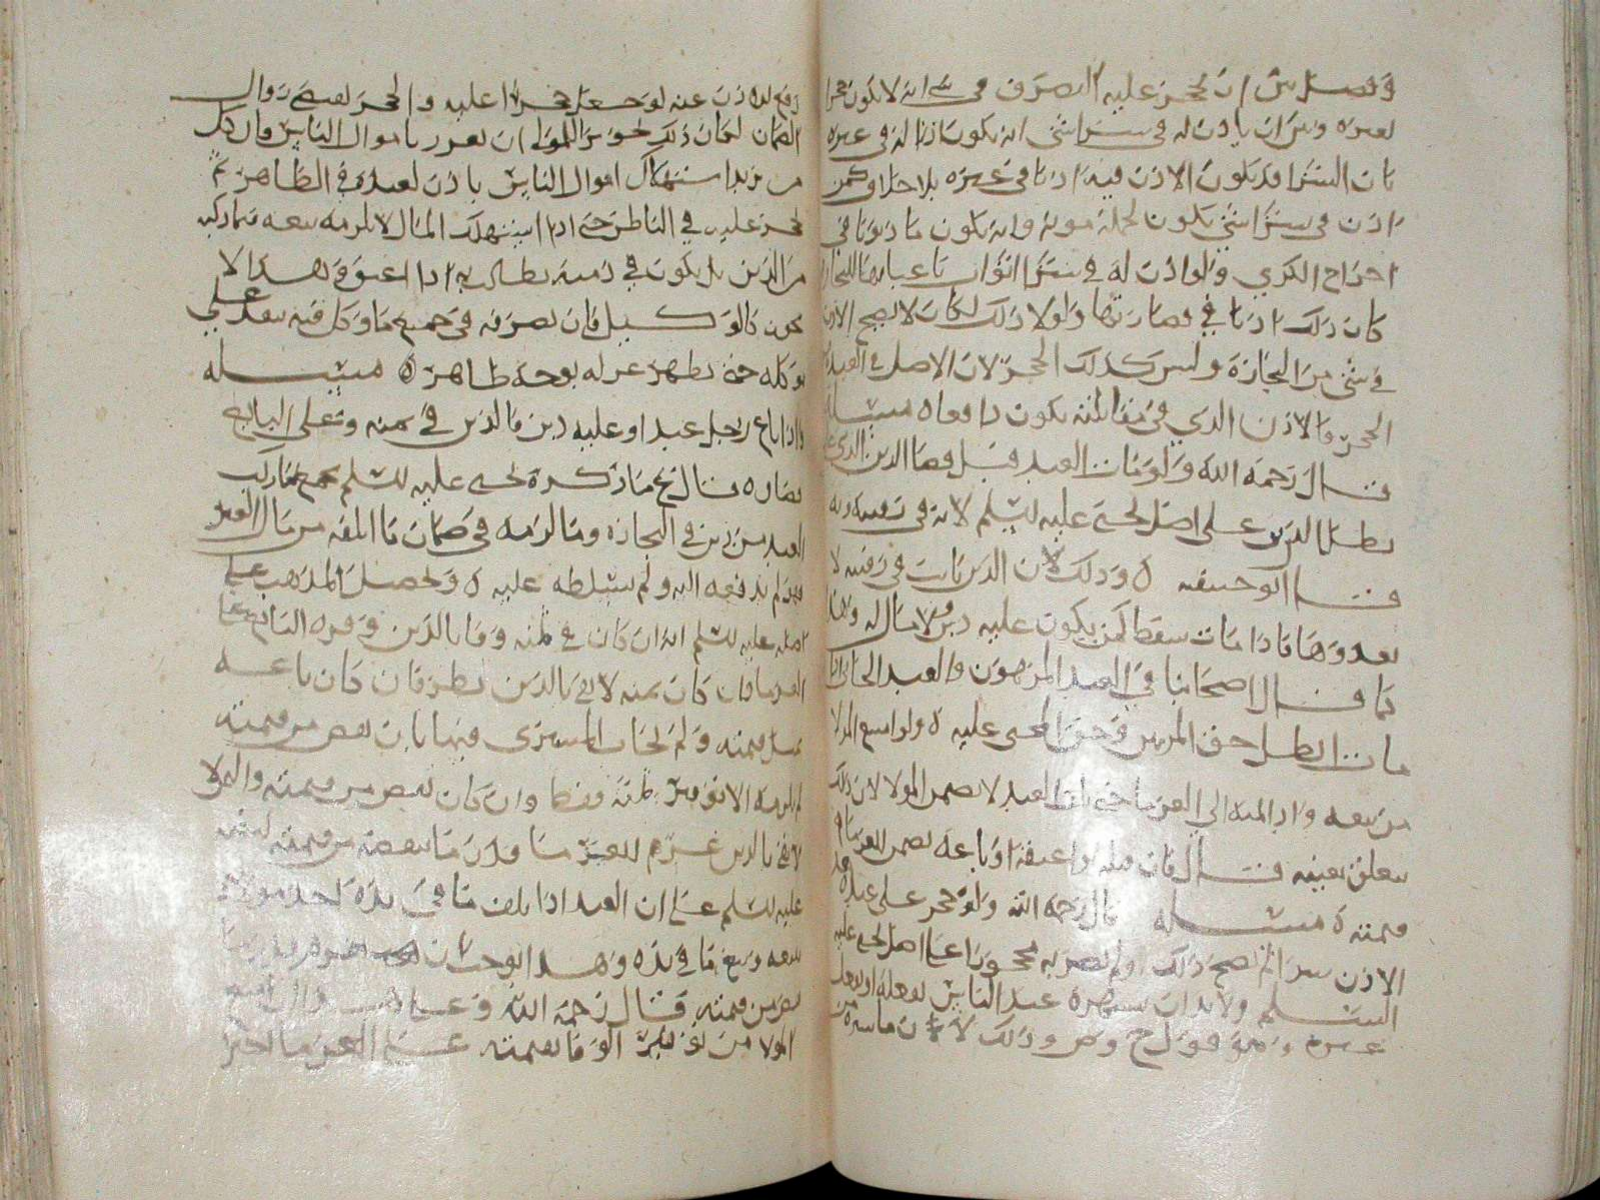 وفصل بين ان يحجر عليه التصرف في شي انه لا يكون حجرا
لغيره وبين ان ياذن له في شرا شي انه يكون اذنا له في غيره
بان الشرا قد يكون الاذن فيه اذنا في غيره بلا خلاف كمن
اذن في شرا شي يكون لحمله مونة وانه يكون ماذونا في
اخراج الكري ولو اذن له في شرا اثواب باعيانها للتجارة
كان ذلك اذنا في قصارتها ولولا ذلك لكان لا يصح الاذن
في شي من التجارة وليس كذلك الحجر لان الاصل في العبد
الحجر والاذن الذي في مقابلته يكون دافعا ه مسئله
قال رحمه الله ولو مات العبد قبل قضا الدين الذي عليه
بطل الدين على اصل يحيى عليه السلم لانه في رقبته وبه
قال ابو حنيفه ه وذلك لان الدين ثابت في رقبته لا
يعدوها فاذا مات سقط كمن يكون عليه دين ولا مال له وهذا
كما قال اصحابنا في العبد المرهون والعبد الجاني اذا
مات ابطل حق المرتهن وحق المجني عليه ه ولو امتنع المولا
من بيعه واد المه الى الغرما حتى مات العبد لا يضمن المولا لان ذلك
متعلق بعينه قال فان قتله او اعتقه او باعه يضمن للغرما
قيمته ه مسئله قال رحمه الله ولو حجر على عبده
الاذن سرا لم يصح ذلك ولم يصر به محجورا على اصل يحيى عليه
السلم ولا بد ان يشهره عند الناس بفعله او بفعل
غيره وهو قول ح وص وذلك لان ما سره من
رفع الاذن عنه لو جعل حجرا عليه والحجر يقتضي زوال
الضمان لكان ذلك تجويز للمولى ان يغرر باموال الناس وكان كل
من يريد استهلاك اموال الناس ياذن لعبده في الظاهر ثم
يحجر عليه في الباطن حتى اذا استهلك المال لا يلزمه بيعه فيما ركبه
من الدين بل يكون في ذمته يطالب به اذا اعتق وهذا لا
يجوز كالوكيل فان تصرفه في جميع ما وكل فيه ينفذ على
موكله حتى يظهر عزله بوجه ظاهر ه مسئله
واذا باع رجل عبدا وعليه دين فالدين في ثمنه وعلى البايع
قضاوه قال ح ما ذكره يحيى عليه السلم يجمع ما ركب
العبد من دين في التجارة وما لزمه في ضمان ما اتلفه من مال الغير
مما لم يدفعه اليه ولم يسلطه عليه ه وتحصيل المذهب على
اصله عليه السلم انه ان كان في ثمنه وفا بالدين وفره البايع على
الغرما فان كان ثمنه لا يفي بالدين نظر فان كان باعه
بمثل قيمته ولم يحاب المشتري فيها بان نقص من قيمته
لم يلزمه الا توفير ثمنه فقط وان كان نقص من قيمته والثمن لا
يفي بالدين غرم للغرما قدر ما نقصه من قيمته
عليه السلم على ان العبد اذا بلف ما في يده
بيعه وبيع ما في يده وهذا يوجب ان
نقص من قيمته قال رحمه الله وعلى
المولا من توفير الوفا بقيمته على الغرما